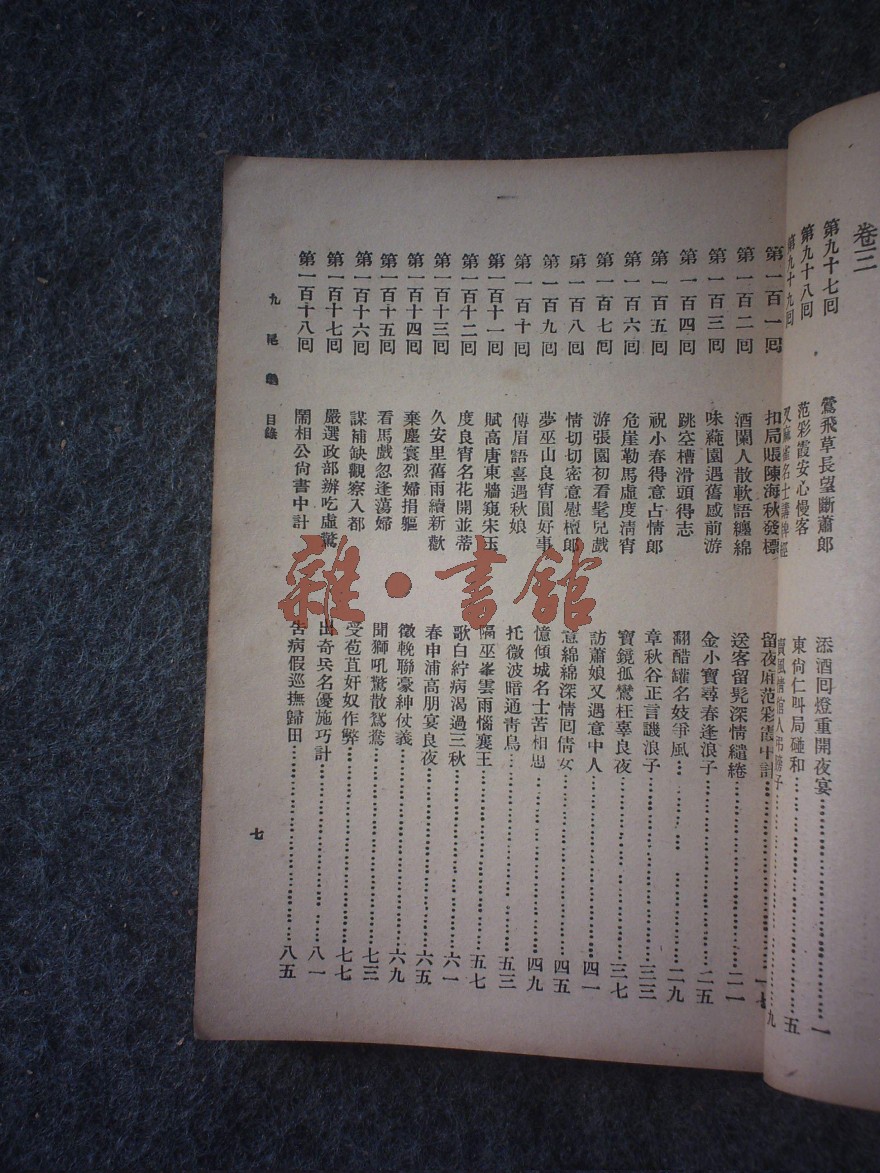 卷三
第九十七囘 鶯飛草長望斷蕭郎 添酒囘燈重開夜宴 一
第九十八囘 范彩霞安心慢客 東尙仁叫局碰和 五
第九十九囘 叉麻雀名士講牌經 九
第一百一囘 扣局賬陳海秋發標 留夜廂范彩霞中計 一七
第一百二囘 酒闌人散軟語纏綿 送客留髡深情繾綣 二一
第一百三囘 味蒓園遇舊感前游 金小寶尋春逢浪子 二五
第一百四囘 跳空槽滑頭得志 翻醋罐名妓爭風 二九
第一百五囘 祝小春得意占情郎 章秋谷正言譏浪子 三三
第一百六囘 危崖勒馬虛度淸宵 寶鏡孤鸞枉辜良夜 三七
第一百七囘 游張園初看髦兒戲 訪蕭娘又遇意中人 四一
第一百八囘 情切切密意慰檀郎 意綿綿深情囘倩女 四五
第一百九囘 夢巫山良宵圓好事 憶傾城名士苦相思 四九
第一百十囘 傳眉語喜遇秋娘 托微波暗通靑鳥 五三
第一百十一囘 賦高唐東牆窺宋玉 隔巫峯雲雨惱襄王 五七
第一百十二囘 度良宵名花開並蒂 歌白紵病渴過三秋 六一
第一百十三囘 久安里舊雨續新歡 春申浦高朋宴良夜 六五
第一百十四囘 棄塵寰烈婦捐軀 徵輓聯豪紳仗義 六九
第一百十五囘 看馬戲忽逢蕩婦 聞獅吼驚散鴛鴦 七三
第一百十六囘 謀補缺觀察入都 受苞苴奸奴作弊 七七
第一百十七囘 嚴選政部辦吃虛驚 出奇兵名優施巧計 八一
第一百十八囘 鬧相公尙書中計 告病假巡撫歸田 八五
九尾龜 目錄
七
雜·書館